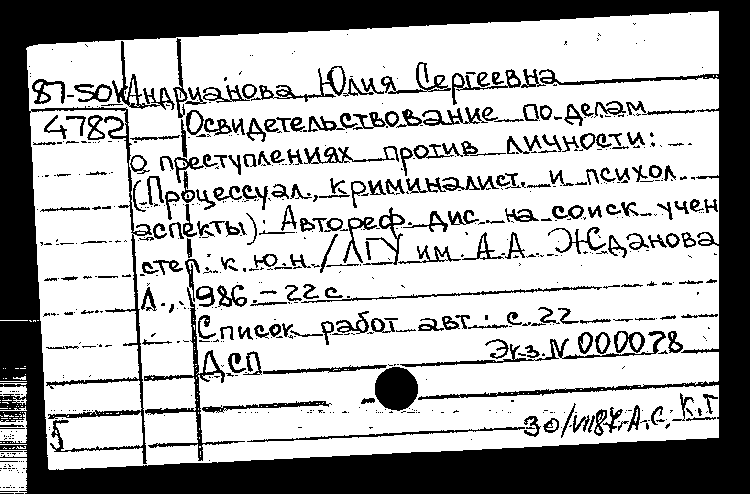 87-50к Андрианова, Юлия Сергеевна
4782 Освидетельствование по делам
о преступлениях против личности:
(Процессуал., криминалист. и психол.
аспекты): Автореф. дис. на соиск. учен.
степ. к.ю.н. / ЛГУ им. А.А. Жданова
Л., 1986. – 22 с.
Список работ авт.: с. 22
ДСП Экз. N 000078
5 30/VII87. А.С. К.Г